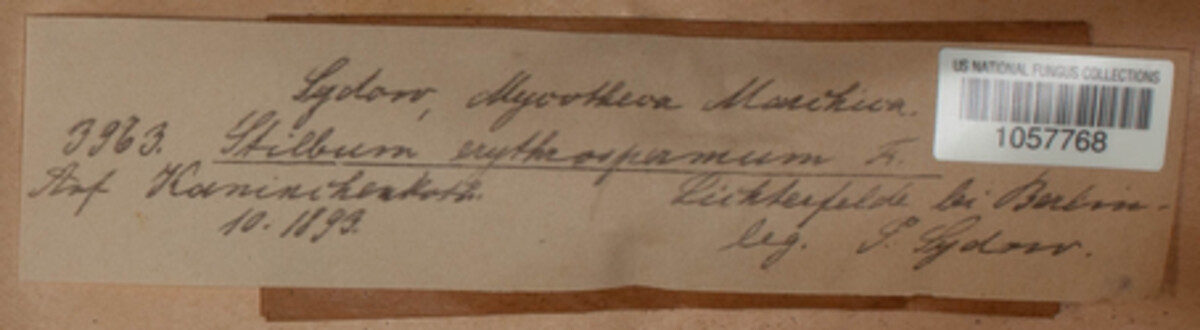 Sydow, Mycotheca Marchica.
3963. Stilbum erythrospermum Fr.
Auf Kaninchenkoth.
Lichterfelde bei Berlin
10. 1893.
leg. P. Sydow.
US NATIONAL FUNGUS COLLECTIONS
1057768